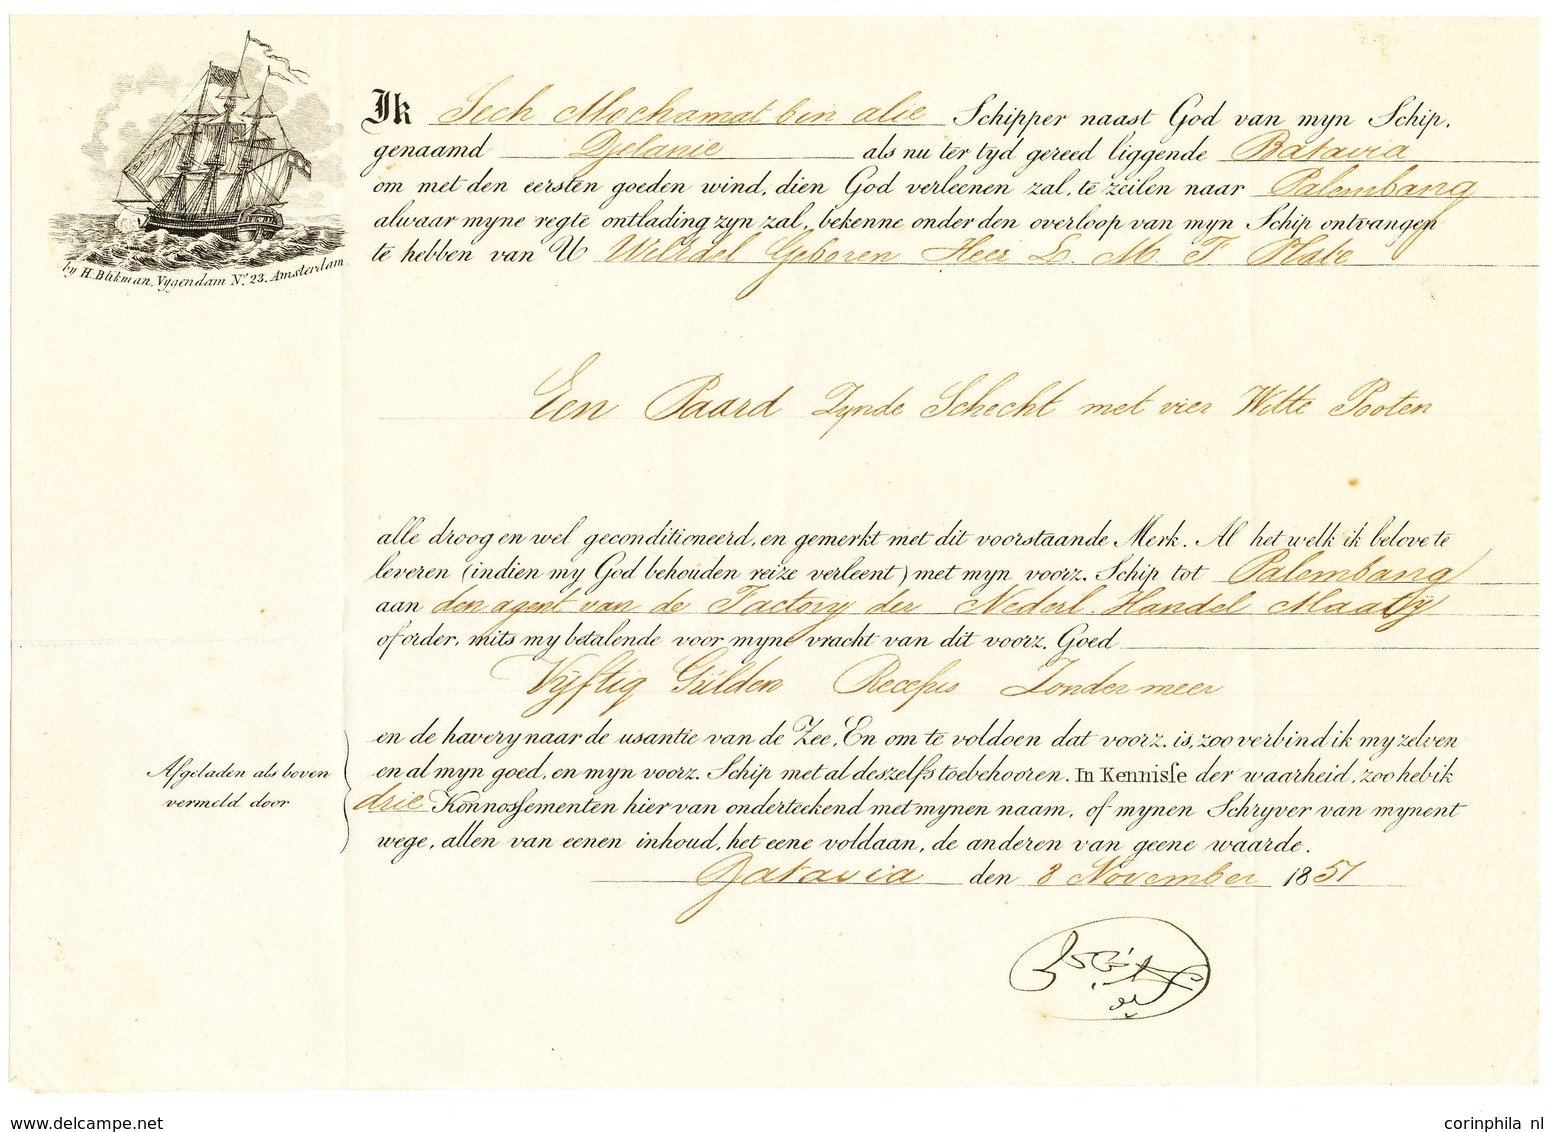 by H. Blikman, Vygendam N.º 23. Amsterdam.
Ik Sech Mochamat bin alie Schipper naast God van myn Schip,
genaamd Djelanie als nu ter tyd gereed liggende Batavia
om met den eersten goeden wind, dien God verleenen zal, te zeilen naar Palembang
alwaar myne regte ontlading zyn zal, bekenne onder den overloop van myn Schip ontvangen
te hebben van U WelEdel Geboren Heer L. M. F. Plate
Een Paard Zynde Schecht met vier Witte Pooten
alle droog en wel geconditioneerd, en gemerkt met dit voorstaande Merk. Al het welk ik belove te
leveren (indien my God behouden reize verleent) met myn voorz. Schip tot Palembang
aan den agent van de Factory der Nederl. Handel Maatij
of order, mits my betalende voor myne vracht van dit voorz. Goed
Vijftig Gulden Recepis Zonder meer
en de havery naar de usantie van de Zee. En om te voldoen dat voorz. is, zoo verbind ik my zelven
en al myn goed, en myn voorz. Schip met al deszelfs toebehooren. In Kennisse der waarheid, zoo heb ik
drie Konnossementen hier van onderteekend met mynen naam, of mynen Schryver van mynent
wege, allen van eenen inhoud, het eene voldaan, de anderen van geene waarde.
Afgeladen als boven
vermeld door
Batavia den 8 November 1851
corinphila nl
www.delcampe.net